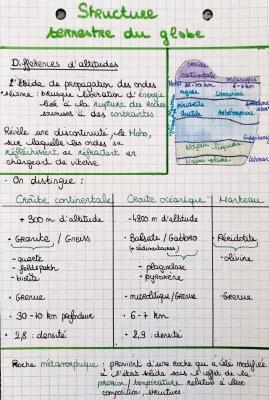 Structure
terrestre du globe
Différences d'altitudes
L'étude de propagation des ondes
séisme : brusque libération d'énergie
lié à la rupture des roches
soumises à des contraintes
Révèle une discontinuité, le Moho,
sur laquelle les ondes se
réfléchissent et réfractent en
changeant de vitesse
Croûte
continentale
océanique
30-70 km
6-7 km
Moho
rigide
Lithosphère
péridotite
ductile
Asthénosphère
Gutenberg
Noyau liquide
Noyau solide
Lehman
• On distingue :
Croûte continentale
Croûte océanique
Manteau
+ 300 m d'altitude
-4800 m d'altitude
• Granite / Gneiss
• Basalte / Gabbro
• Péridotite
(+ sédimentaires)
- quartz
- feldspath
- biotite
- plagioclase
- pyroxène
- olivine
• Grenue
• microlitique / Grenue
• Grenue
• 30-70 km profondeur
• 6-7 km
• 2,8 : densité
• 2,9 : densité
Roche métamorphique : provient d'une roche qui a été modifiée
à l'état solide sous l'effet de la
pression / température relative à leur
composition / structure.